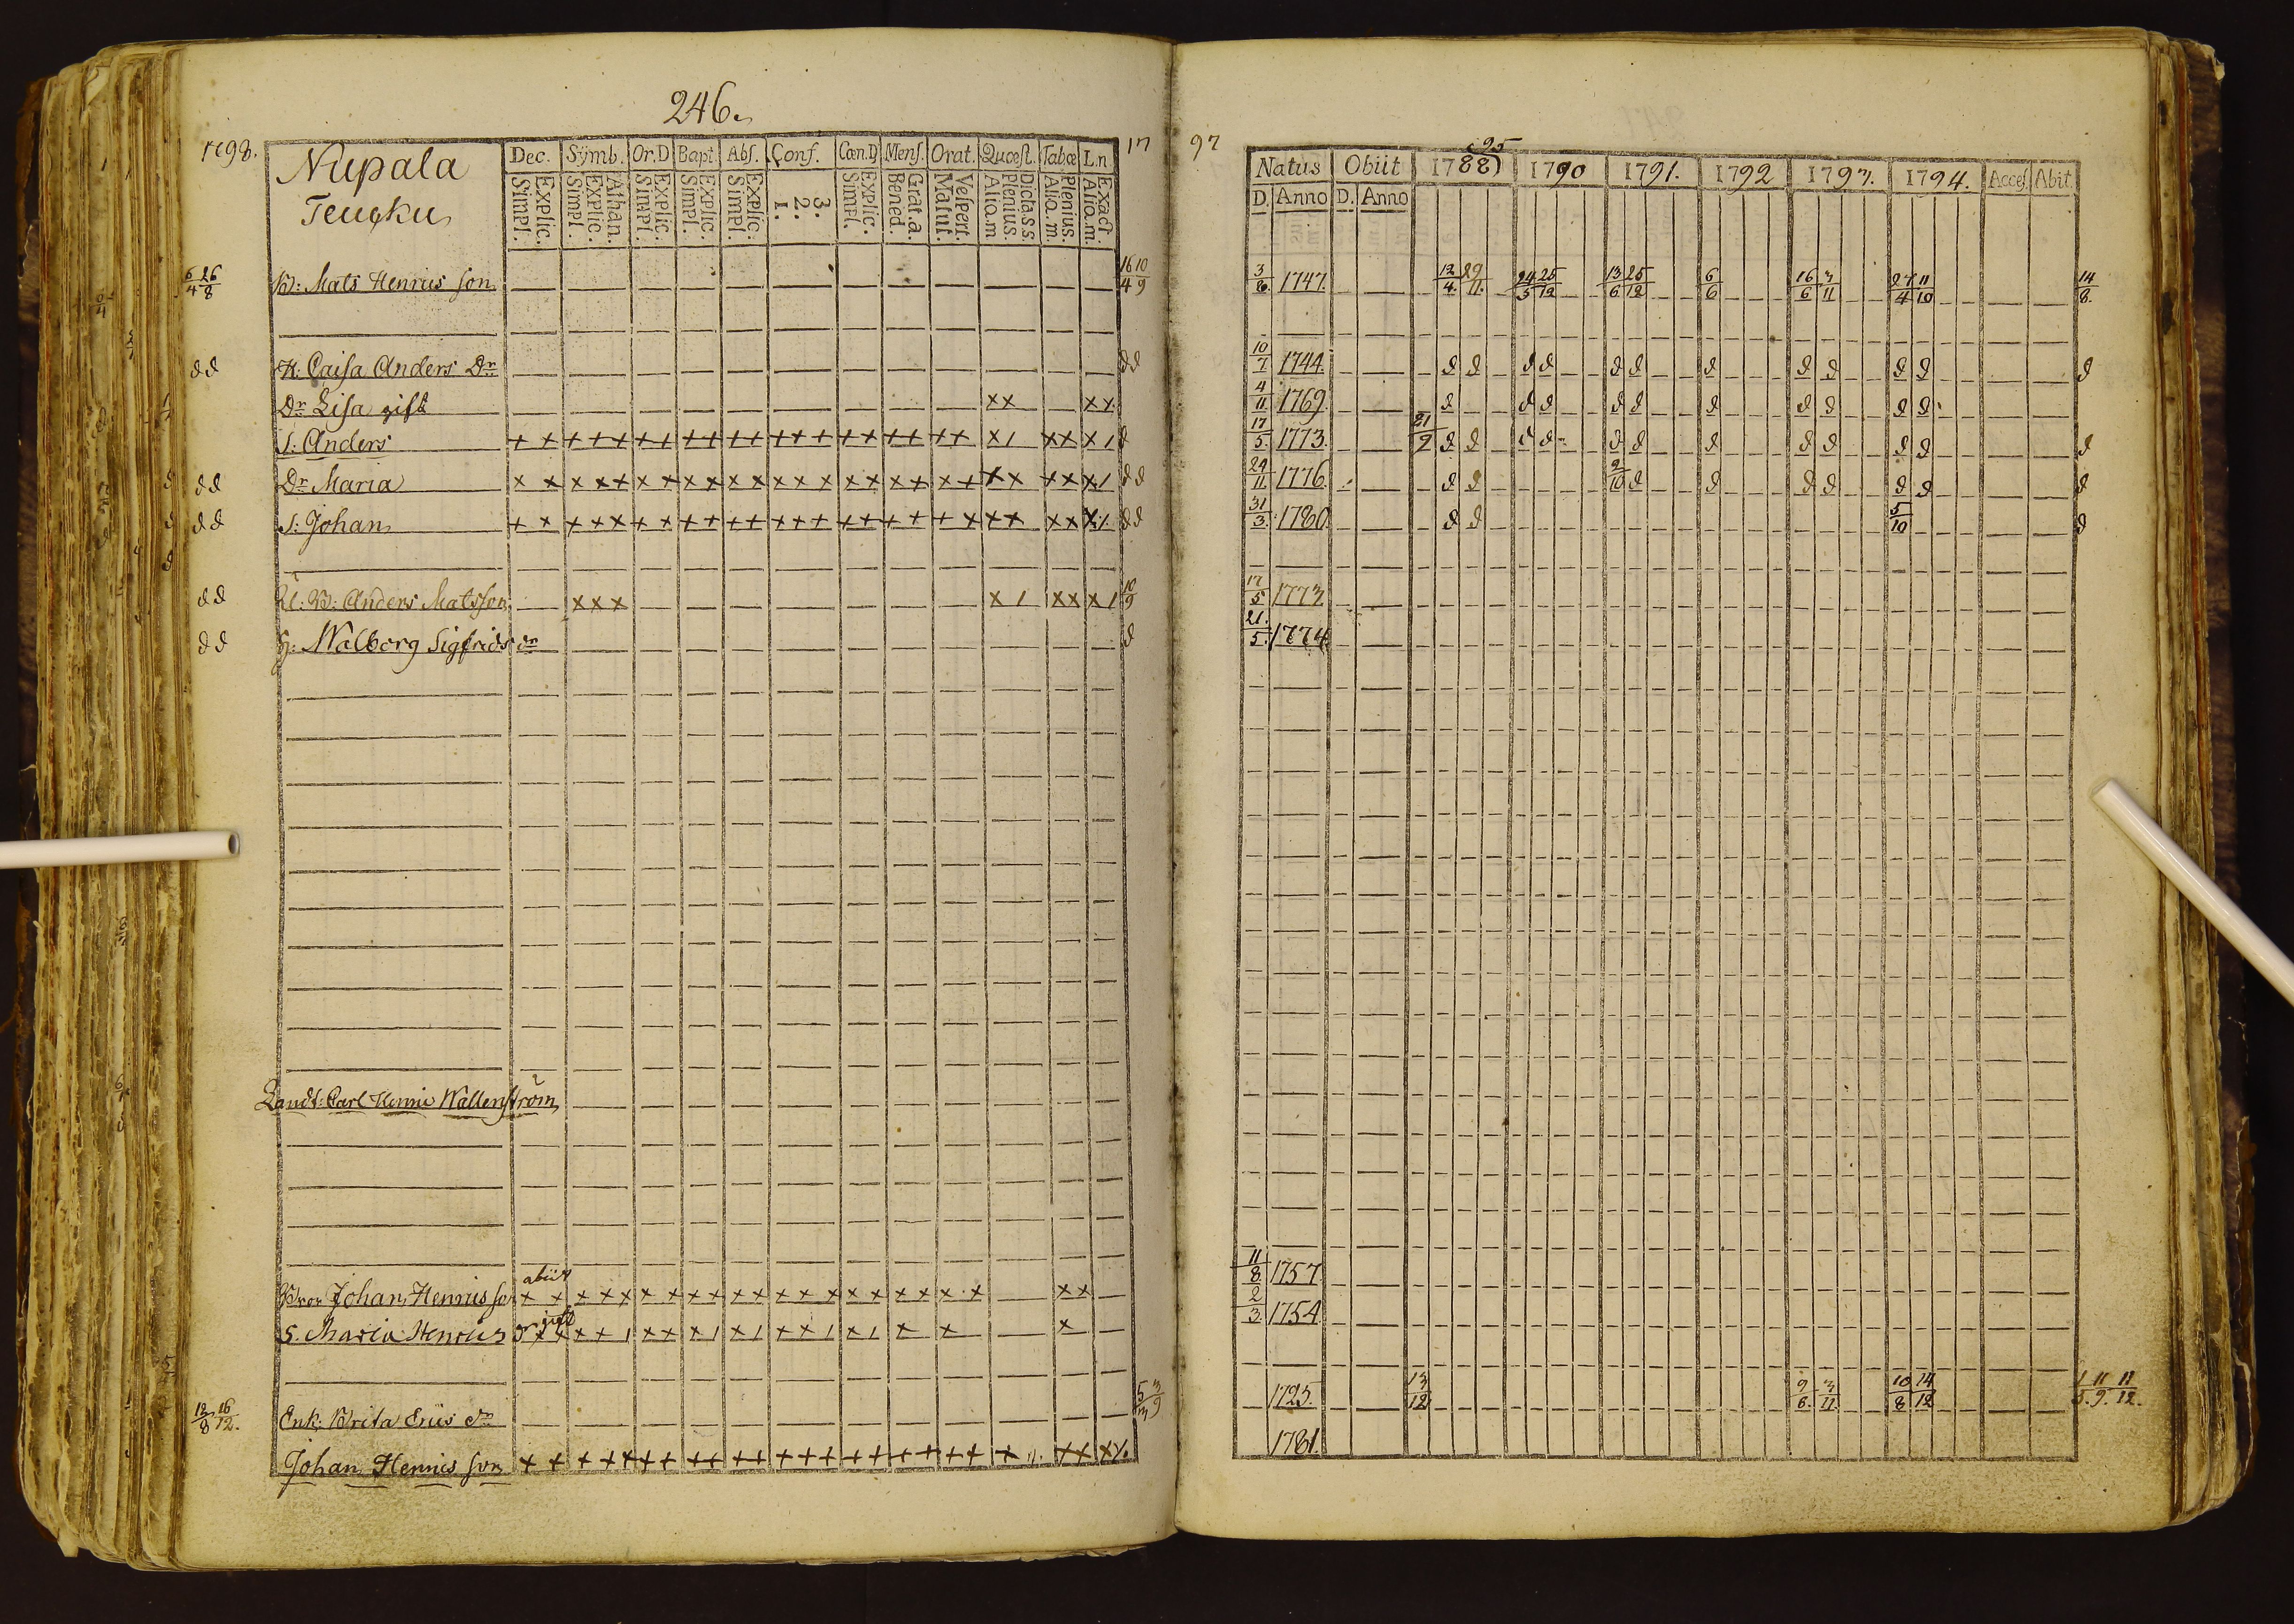 246.
1798.
Nupala
Teucku
Dec. Symb. Or.D Bapt. Abſ. Conf. Cœn.D Menſ. Orat. Quœſt. Tabœ L.n
17 97
Simpl. Explic. Simpl. Explic. Athan. Simpl. Explic. Simpl. Explic. Simpl. Explic. 1. 2. 3. Simpl. Explic. Bened. Grat.a. Matut. Veſpert. Aliq.m Plenius. Dicta.s.s. Aliq.m. Plenius. Aliq.m. Exact.
Natus Obiit 1788) 95 1790 1791. 1792 1793. 1794. Acceſ. Abit.
D. Anno D. Anno
6/4 26/8 B: Mats Henrics ſon 16/4 10/9 3/20. 1747. 12/4 29/11. 24/5 25/12 13/6 25/12 6/6 16/6 3/11 27/4 11/10 14/8.
d d H. Caiſa Anders Dr d d 10/7 1744. d d d d d d d d d d d d
Dr Liſa gift x x x x 4/11 1769. d d d d d d d d d d
S: Anders + + + + + + + + + + + + + + + + + + + + x / x x x / d 17/5 1773. 21/9 d d d d d d d d d d d d
d d Dr Maria x x x x + x + x x x x x x x x x x + + + x x + x x / d d 24/11 1776. d d 2/10 d d d d d d d
d d S: Johan + + + + x + x + + + + + + + + + + + + x x x x x d d 31/3. 1780 d d 5/10 d
d d U: B: Anders Matsſon x x x x / x x x / 10/9 17/5 1773
d d H: Walborg Sigfrids dr d 21./5. 1774.
Landt: Carl Henric Wallenſtröm
abiit
Bror Johan Henrics ſon x x x x x x x x x x x x x x x x x x x x x x 11/8 1757
gift
S. Maria Henrics dr x x x x / x x x / x / x x / x / x x x 2/3. 1754
12/8 16/12. Enk. Brita Erics dr 5/3 3/9 1725. 13/12 9/6. 3/11 10/8 14/12 1/5. 11/9. 11/12.
Johan Henrics ſon + + + + x + x + + + + + + + + + + + + + x x x 1781.